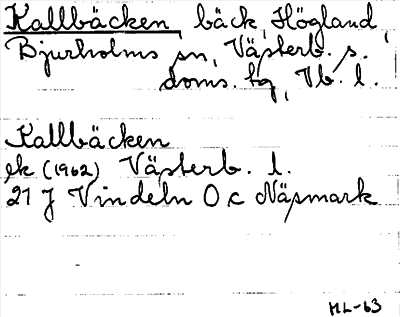 Kallbäcken, bäck, Högland,
Bjurholms sn, Västerb. s.
doms. tg, Vb. l.
Kallbäcken
ek (1962) Västerb. l.
21 J Vindeln O c Näsmark
ML-63